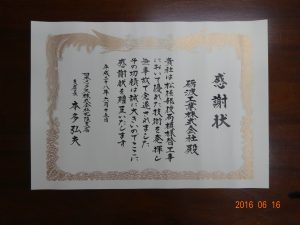 感謝状
砺波工業株式会社 殿
貴社は松任総技高模様替工事
において優れた技術を発揮し
無事故で完遂されました
その功績は誠に大きいのでここに
感謝状を贈呈いたします
平成二十八年六月十五日
株式会社
本多弘夫
2016 06 16